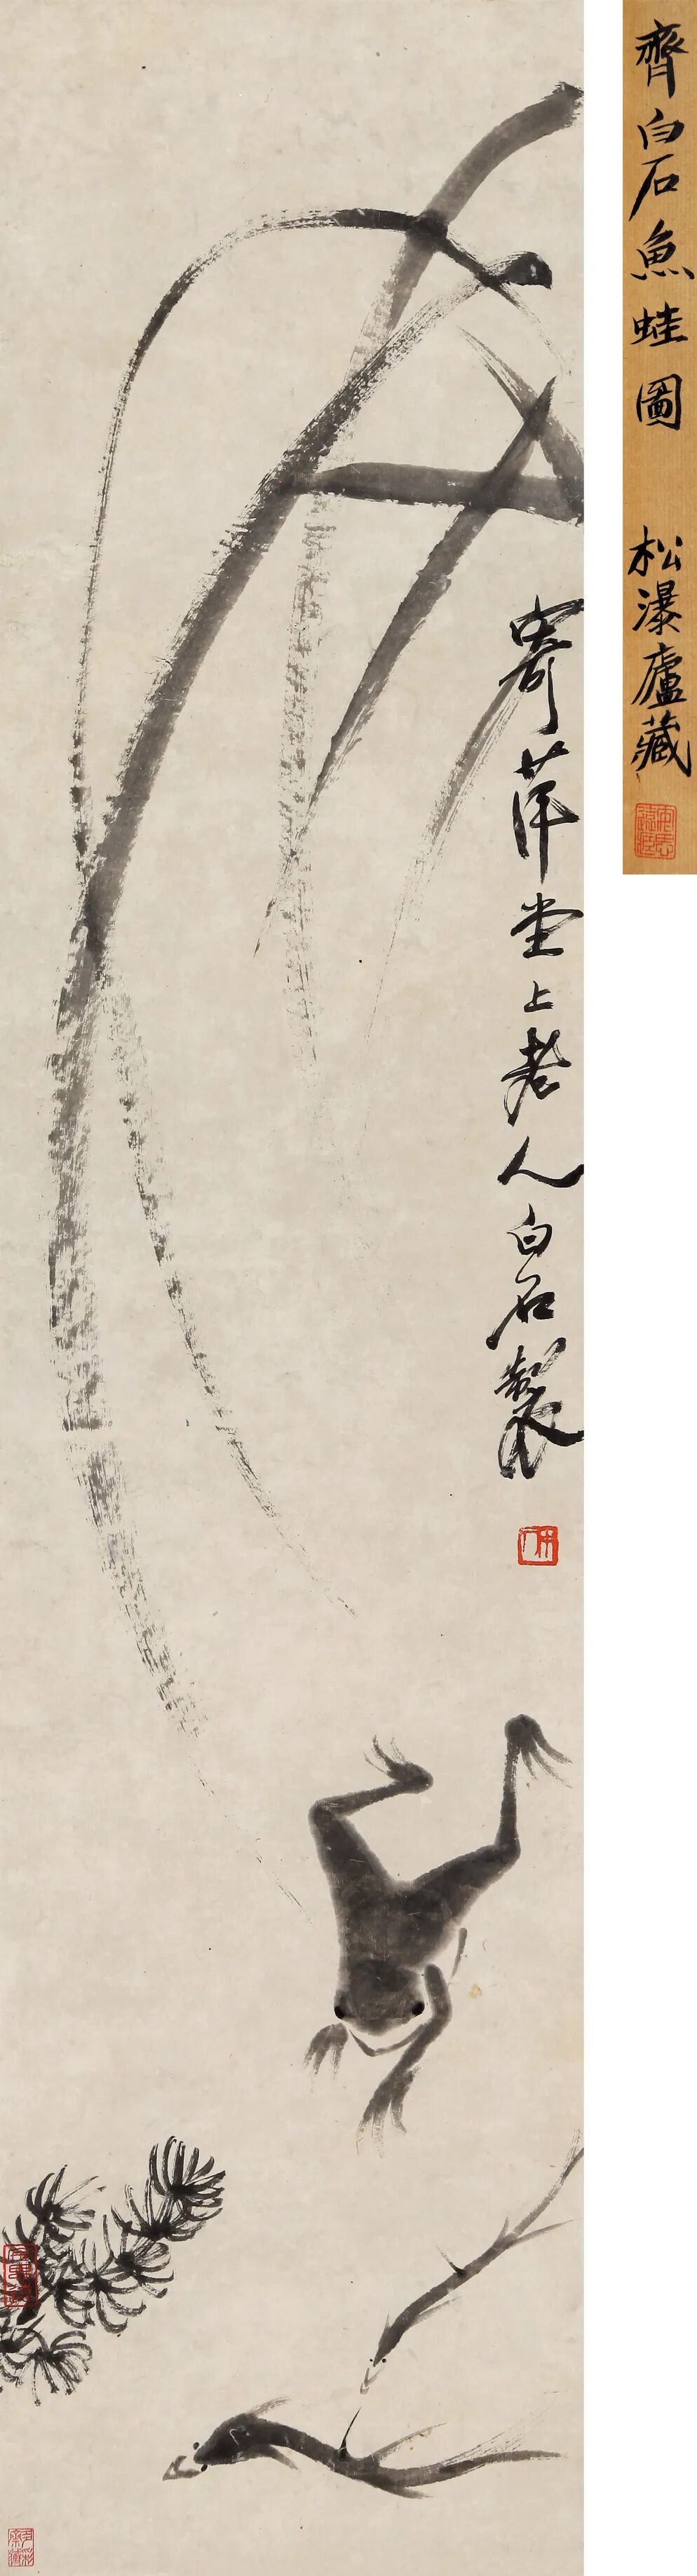 齊白石魚蛙圖 松瀑廬藏
寄萍堂上老人白石製
木人